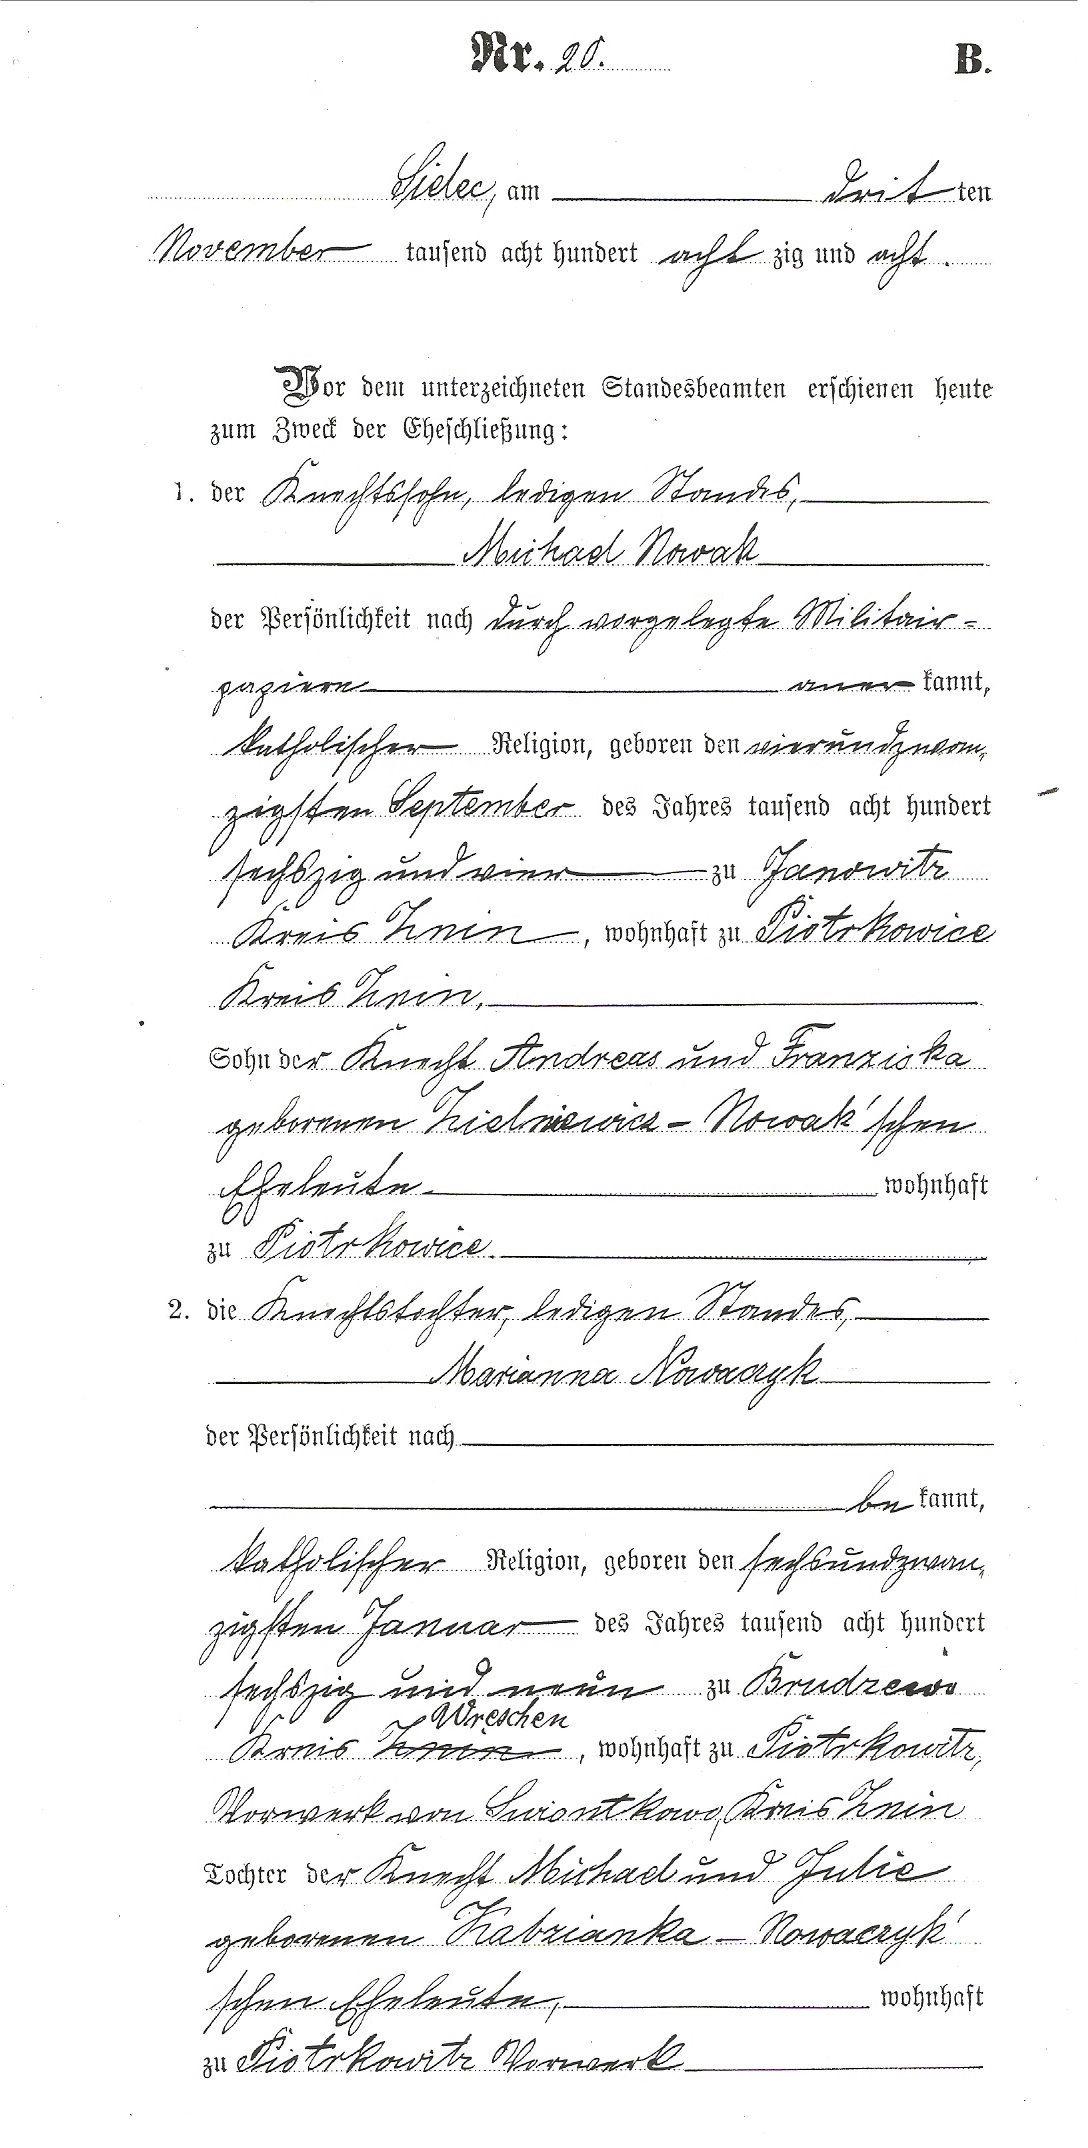 Nr. 20.
B.
Sielec, am drit ten
November tausend acht hundert acht zig und acht.
Vor dem unterzeichneten Standesbeamten erschienen heute
zum Zweck der Eheschließung:
1. der Knechtssohn, ledigen Standes,
Michael Nowak
der Persönlichkeit nach durch vorgelegte Militair-
papiere aner kannt,
katholischer Religion, geboren den vierundzwan-
zigsten September des Jahres tausend acht hundert
sechszig und vier zu Janowitz
Kreis Znin, wohnhaft zu Piotrkowice
Kreis Znin,
Sohn der Knecht Andreas und Franziska
geborenen Zielniewicz - Nowak'schen
Eheleute wohnhaft
zu Piotrkowice.
2. die Knechtstochter, ledigen Standes,
Marianna Nowaczyk
der Persönlichkeit nach
be kannt,
katholischer Religion, geboren den sechsundzwan-
zigsten Januar des Jahres tausend acht hundert
sechszig und neun zu Brudzewo
Wreschen
Kreis Znin, wohnhaft zu Piotrkowitz,
Vorwerk von Swiontkowo, Kreis Znin
Tochter der Knecht Michael und Julie
geborenen Kabzianka - Nowaczyk'
schen Eheleute, wohnhaft
zu Piotrkowitz Vorwerk